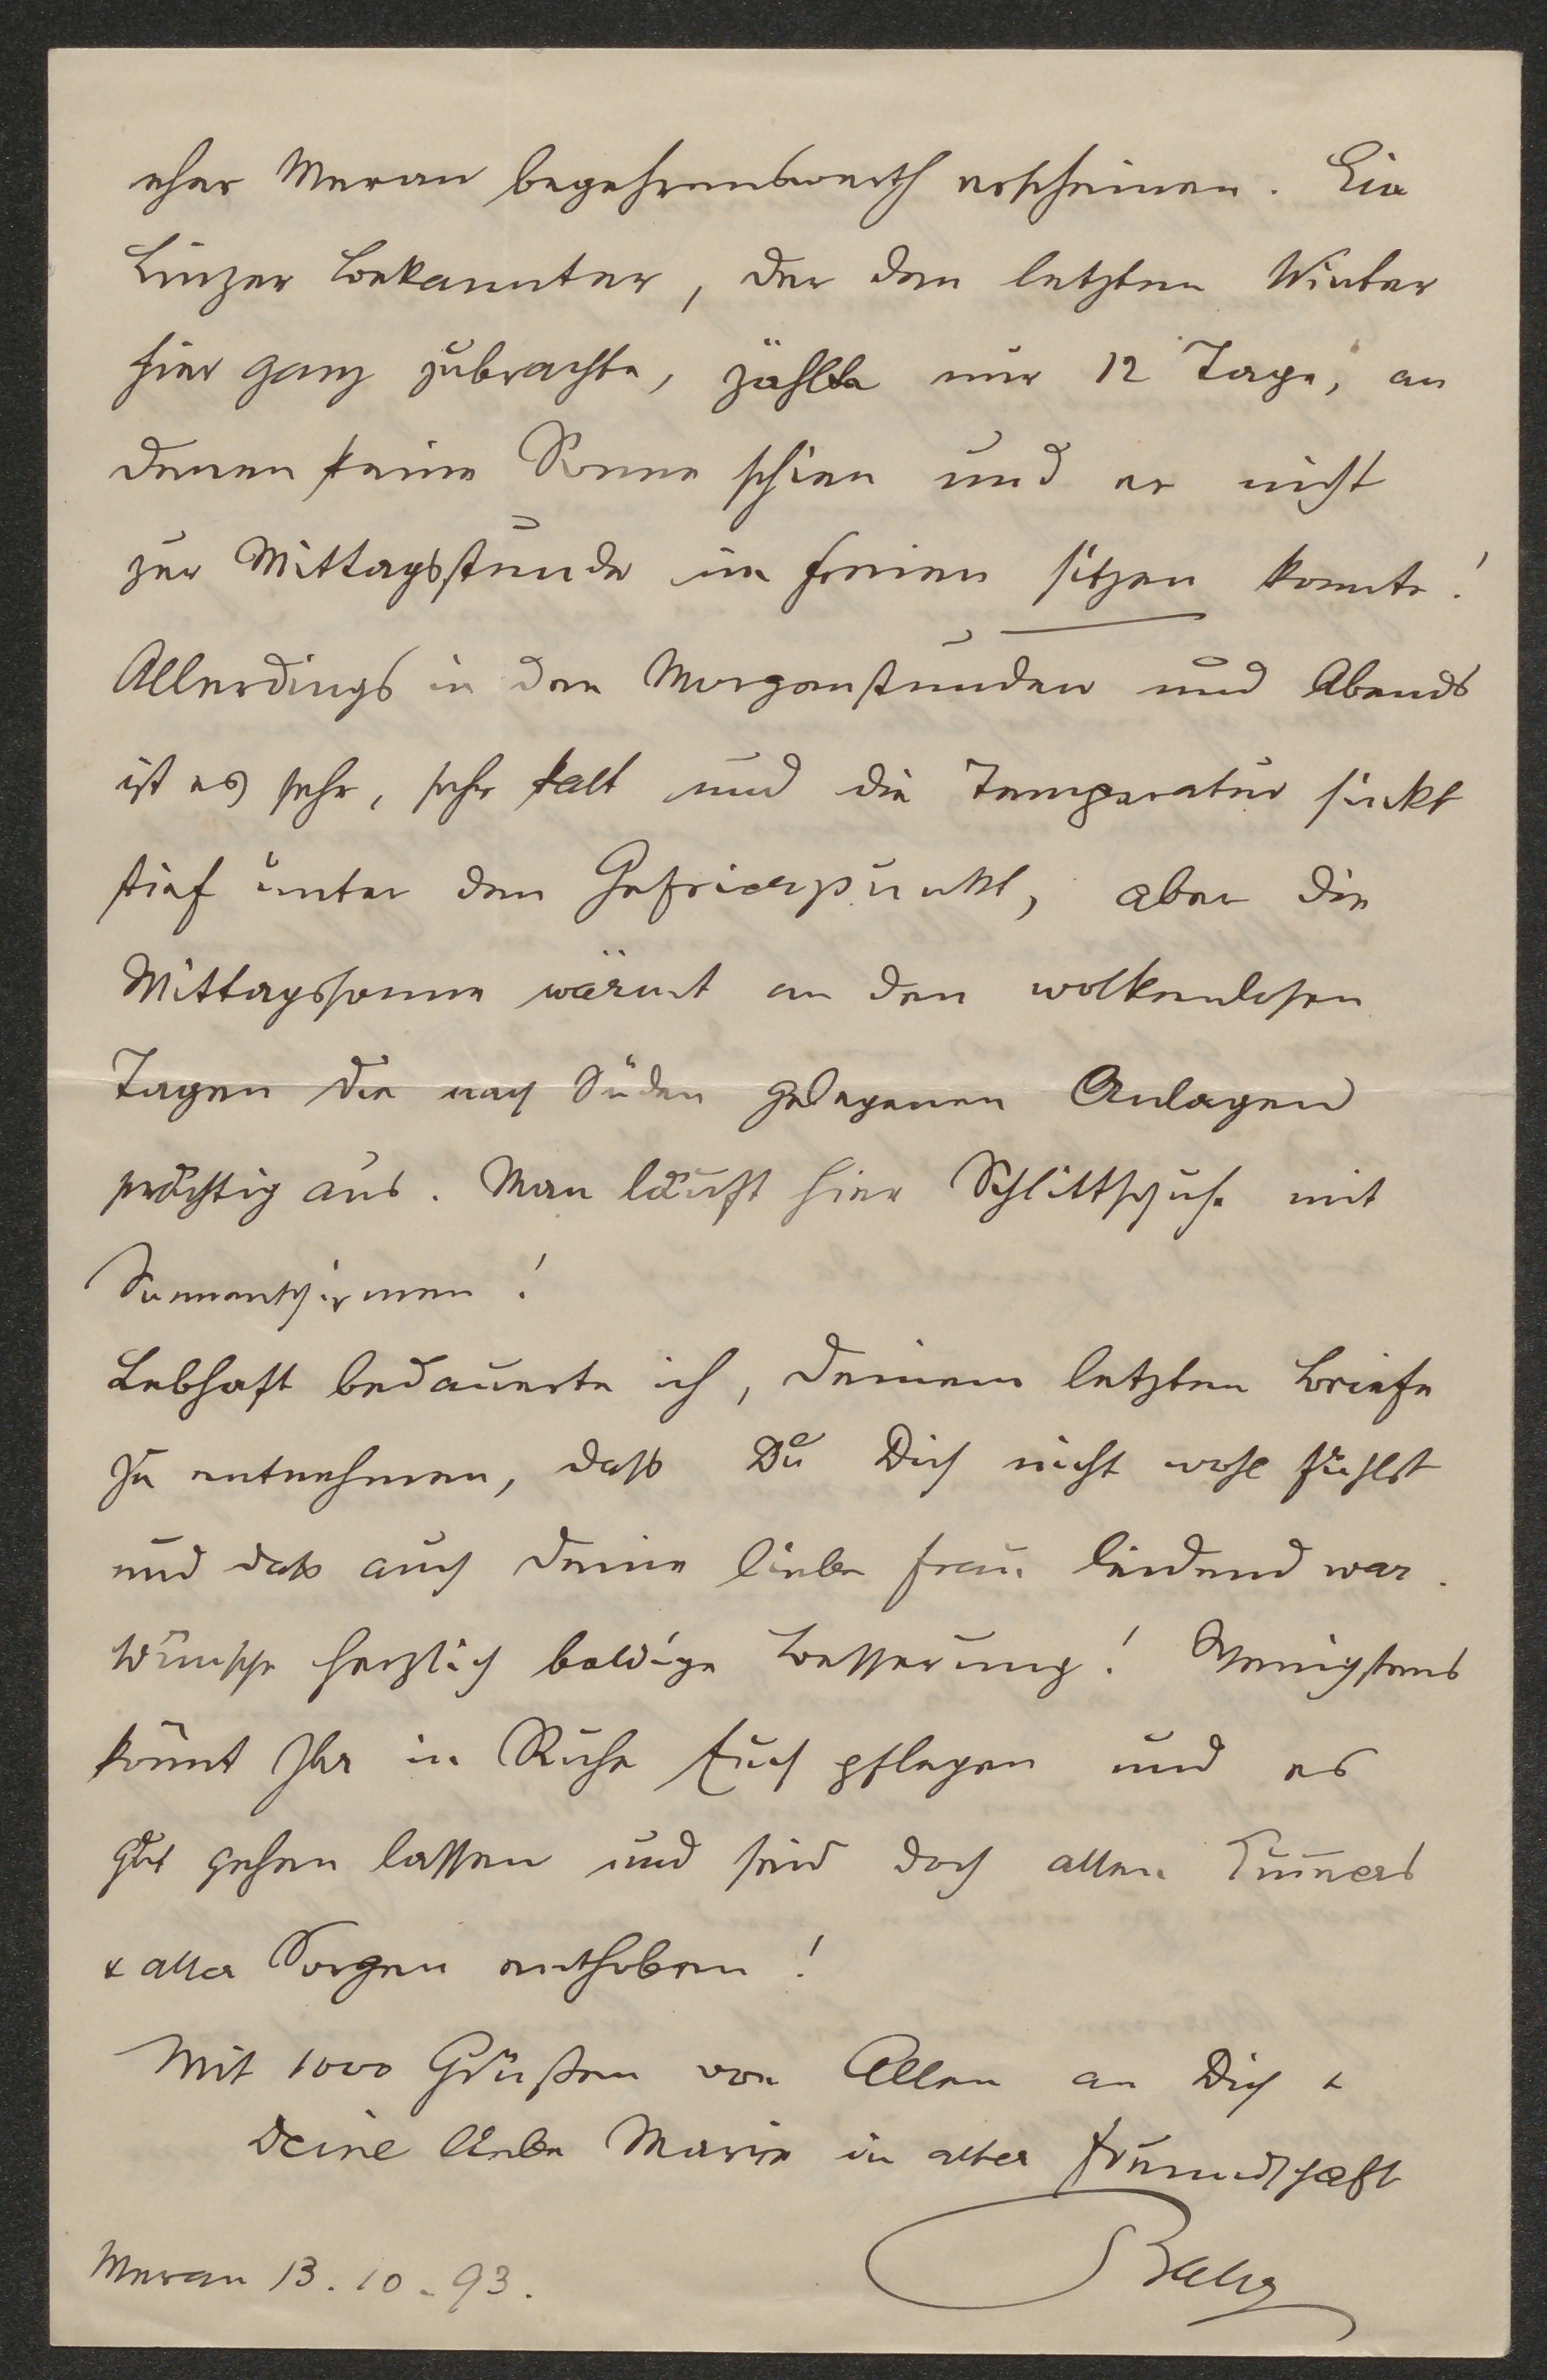 eher Meran begehrenswerth erscheinen. Ein
Linzer Bekannter, der den letzten Winter
hier ganz zubrachte, zählte nur 12 Tage, an
denen keine Sonne schien und er nicht
zur Mittagsstunde im Freien sitzen konnte!
Allerdings in den Morgenstunden und Abends
ist es sehr, sehr kalt und die Temperatur sinkt
tief unter den Gefrierpunkt, aber die
Mittagssonne wärmt an den wolkenlosen
Tagen die nach Süden gelegenen Anlagen
prächtig aus. Man läuft hier Schlittschuhe mit
Sonnenschirmen!
Lebhaft bedauerte ich, Deinem letzten Briefe
zu entnehmen, daß Du Dich nicht wohl fühlst
und daß auch Deine liebe Frau leidend war.
Wünsche herzlich baldige Besserung! Wenigstens
könnt Ihr in Ruhe Euch pflegen und es
gut gehen lassen und seid doch allen
& aller Sorgen enthoben!
Mit 1000 Grüßen von Allen an Dich &
Deine liebe Marie in alter Freundschaft
Meran 13.10.93.